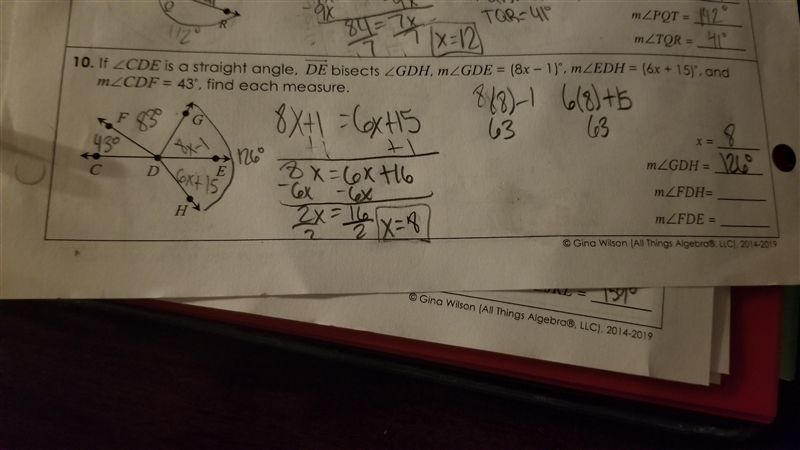 Q
R
112°
-9x -9x
84 = 7x
7 7
x=12
TQR=41°
m∠PQT = 142°
m∠TQR = 41°
10. If ∠CDE is a straight angle, DE bisects ∠GDH, m∠GDE = (8x − 1)°, m∠EDH = (6x + 15)°, and
m∠CDF = 43°, find each measure.
F 83° G
43° 8x-1 126°
C D E
6x+15
H
8x+1 = 6x+15
+1 +1
8x = 6x+16
-6x -6x
2x = 16
2 2
x=8
8(8)-1 6(8)+15
63 63
x = 8
m∠GDH = 126°
m∠FDH=
m∠FDE=
© Gina Wilson (All Things Algebra®, LLC), 2014-2019
© Gina Wilson (All Things Algebra®, LLC), 2014-2019